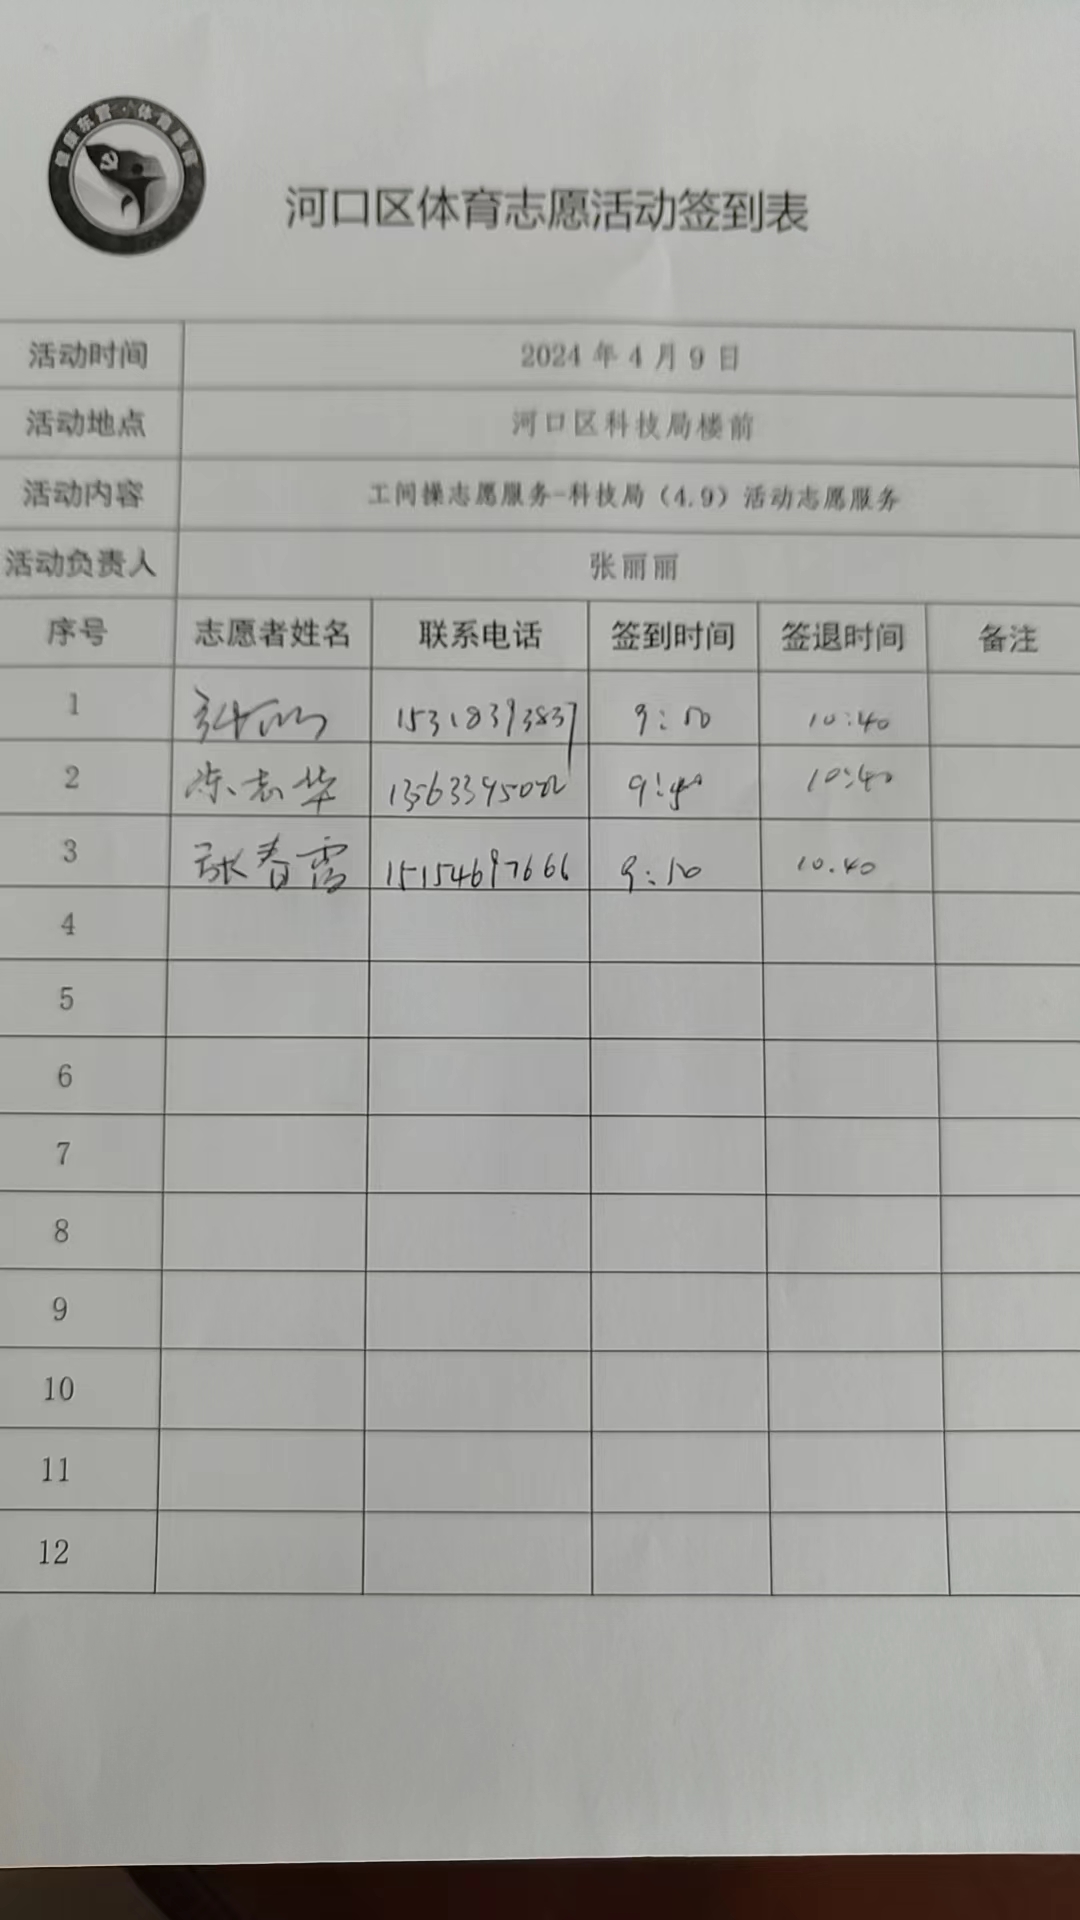 健康东营·体育惠民
河口区体育志愿活动签到表
活动时间 2024年4月9日
活动地点 河口区科技局楼前
活动内容 工间操志愿服务-科技局（4.9）活动志愿服务
活动负责人 张丽丽
序号 志愿者姓名 联系电话 签到时间 签退时间 备注
1 15318393837 9:10 10:40
2 陈志华 10:40
3 张春雷 15154697666 9:10 10.40
4
5
6
7
8
9
10
11
12